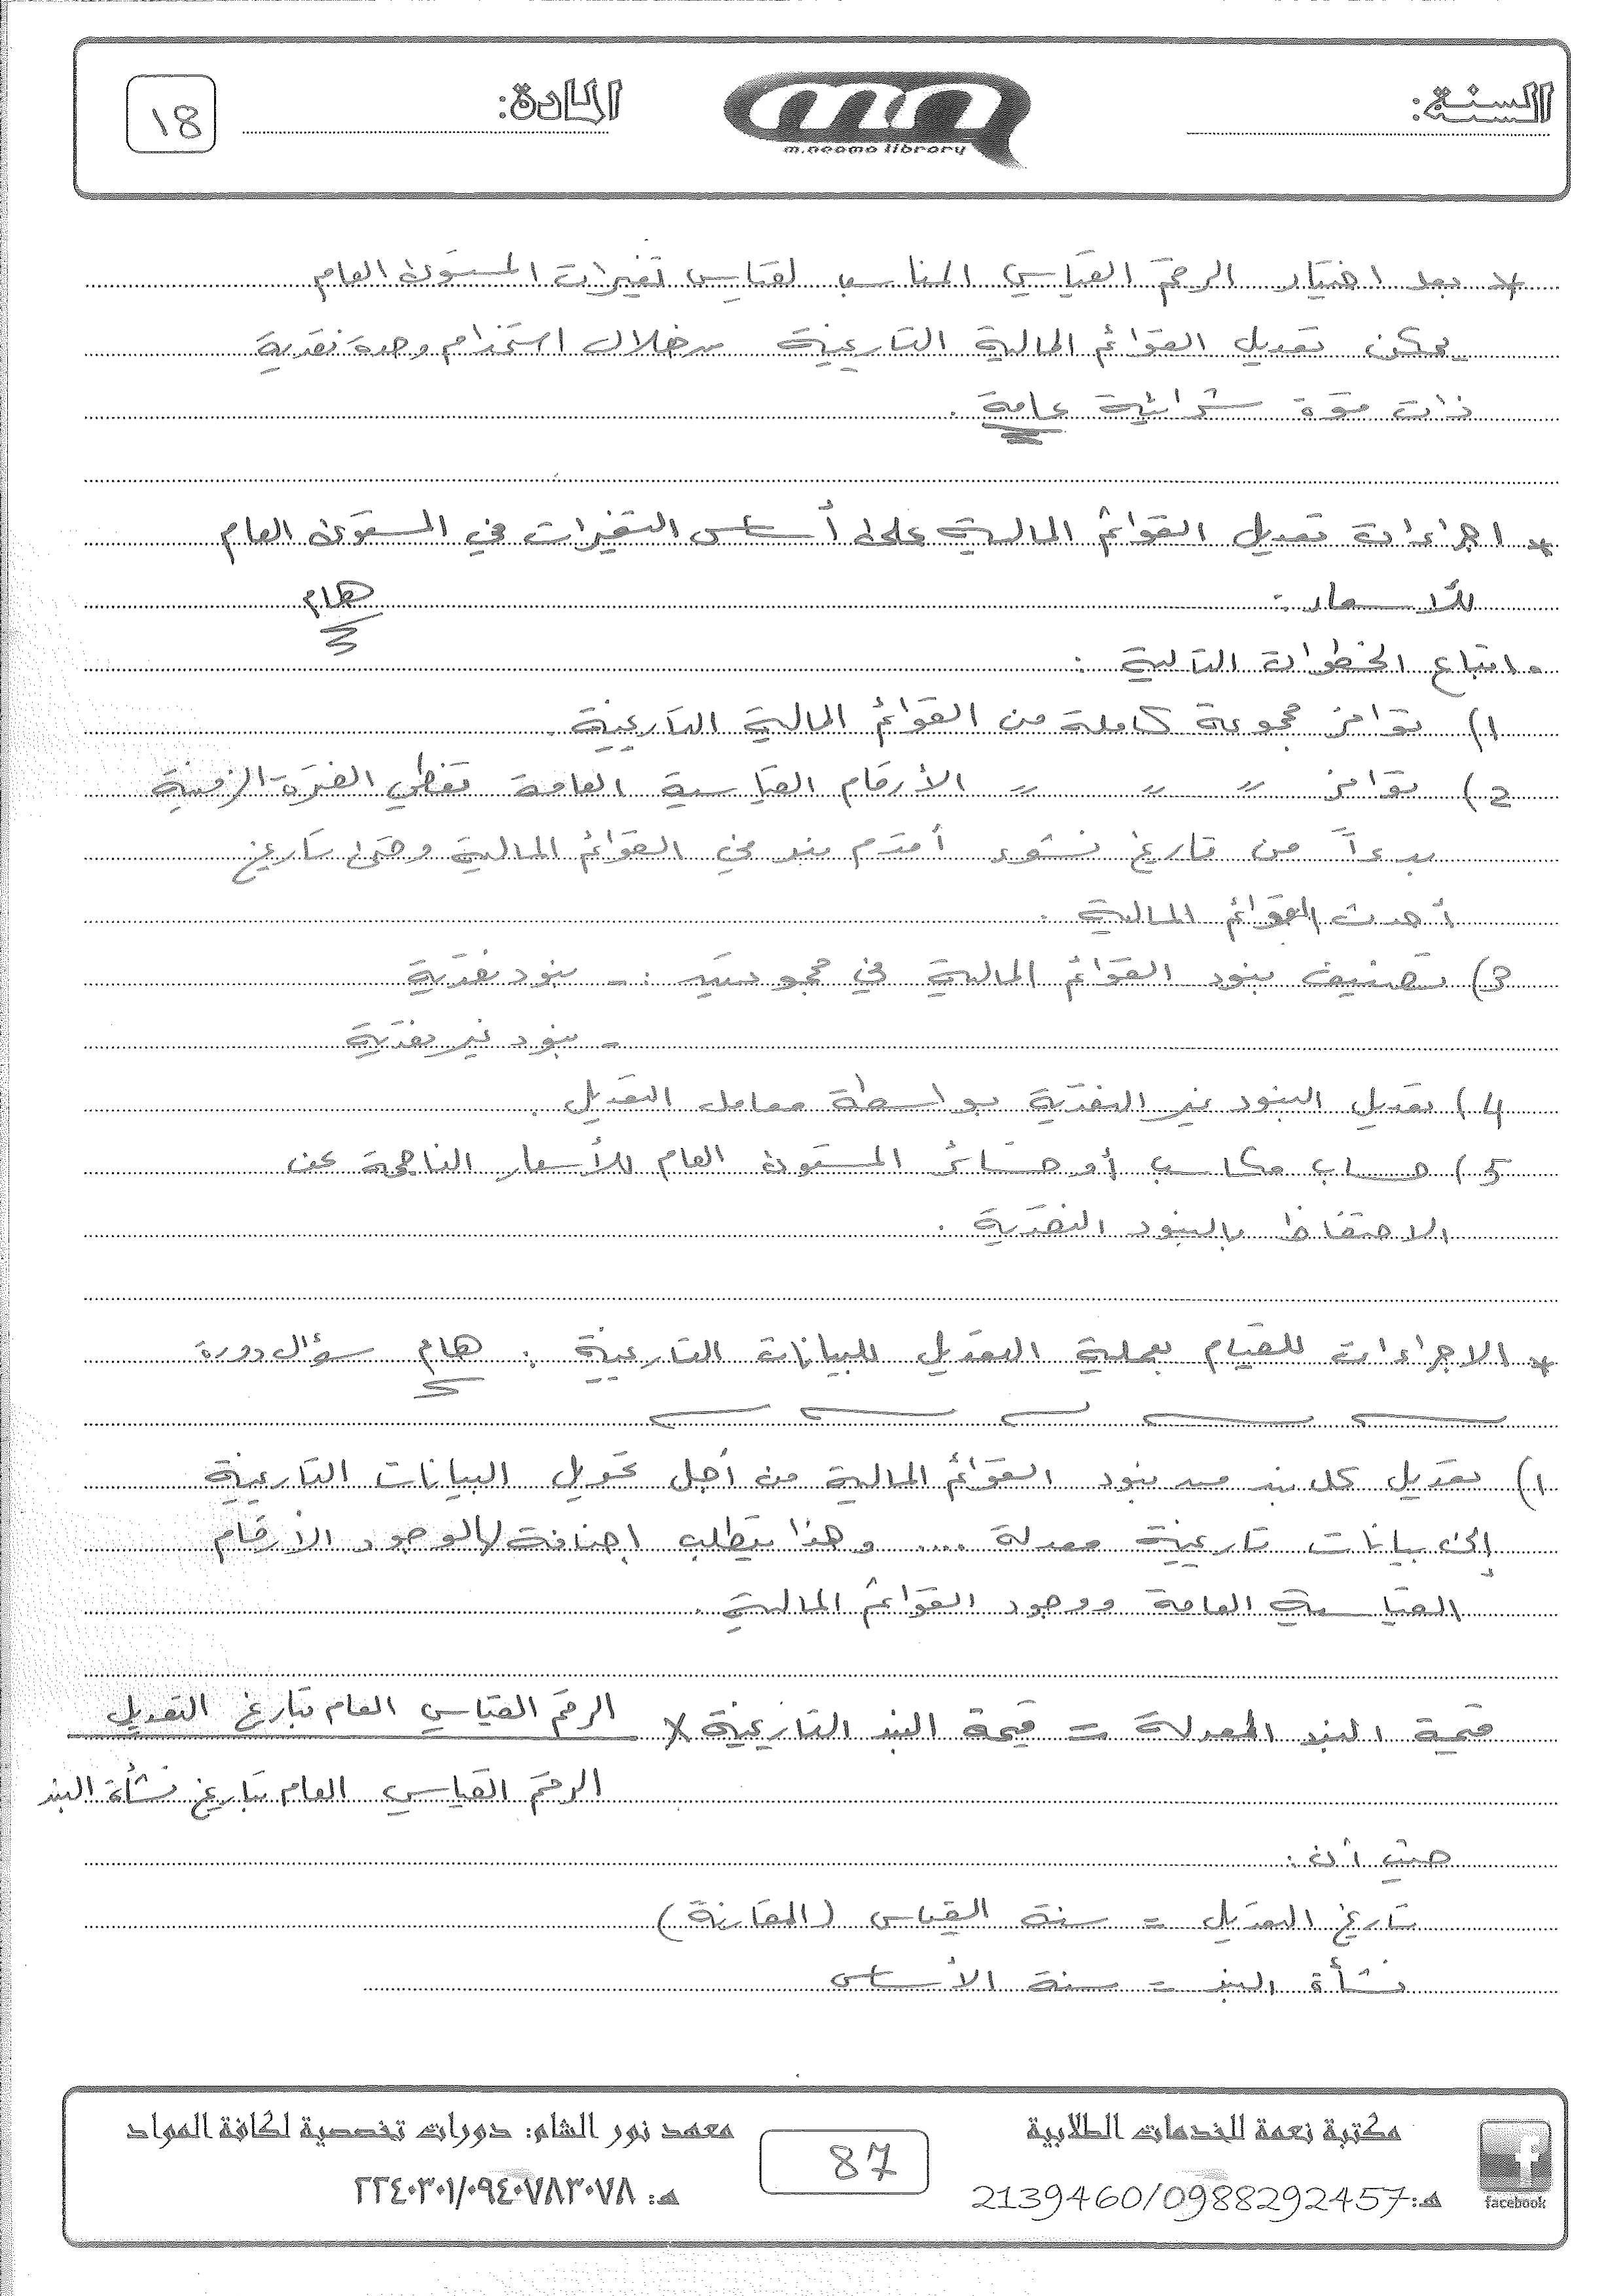 السنة:
m.neama library
المادة:
18
* بعد اختيار الرقم القياسي المناسب لقياس تغيرات المستوى العام
يمكن تعديل القوائم المالية التاريخية من خلال استخدام وحدة نقدية
ذات قوة شرائية عامة .
* اجراءات تعديل القوائم المالية على أساس التغيرات في المستوى العام
للأسعار :
هام
- اتباع الخطوات التالية :
1) توافر مجموعة كاملة من القوائم المالية التاريخية .
2) توافر 〃 〃 〃 الأرقام القياسية العامة تغطي الفترة الزمنية
بدءاً من تاريخ نشوء أقدم بند في القوائم المالية وحتى تاريخ
أحدث القوائم المالية .
3) تصنيف بنود القوائم المالية في مجموعتين : - بنود نقدية
- بنود غير نقدية
4) تعديل البنود غير النقدية بواسطة معامل التعديل .
5) حساب مكاسب أو خسائر المستوى العام للأسعار الناجمة عن
الاحتفاظ بالبنود النقدية .
* الاجراءات للقيام بعملية التعديل للبيانات التاريخية : هام سؤال دورة
1) تعديل كل بند من بنود القوائم المالية من أجل تحويل البيانات التاريخية
إلى بيانات تاريخية معدلة .... وهذا يتطلب اضافة لوجود الأرقام
القياسية العامة ووجود القوائم المالية .
قيمة البند المعدلة = قيمة البند التاريخية × الرقم القياسي العام بتاريخ التعديل
الرقم القياسي العام بتاريخ نشأة البند
حيث أن :
تاريخ التعديل = سنة القياس (المقارنة)
نشأة البند = سنة الأساس
مكتبة نعمة للخدمات الطلابية
هـ: 2139460/0988292457
facebook
87
معهد نور الشام: دورات تخصصية لكافة المواد
هـ: ٢٢٤٠٣٠١/٠٩٤٠٧٨٣٠٧٨